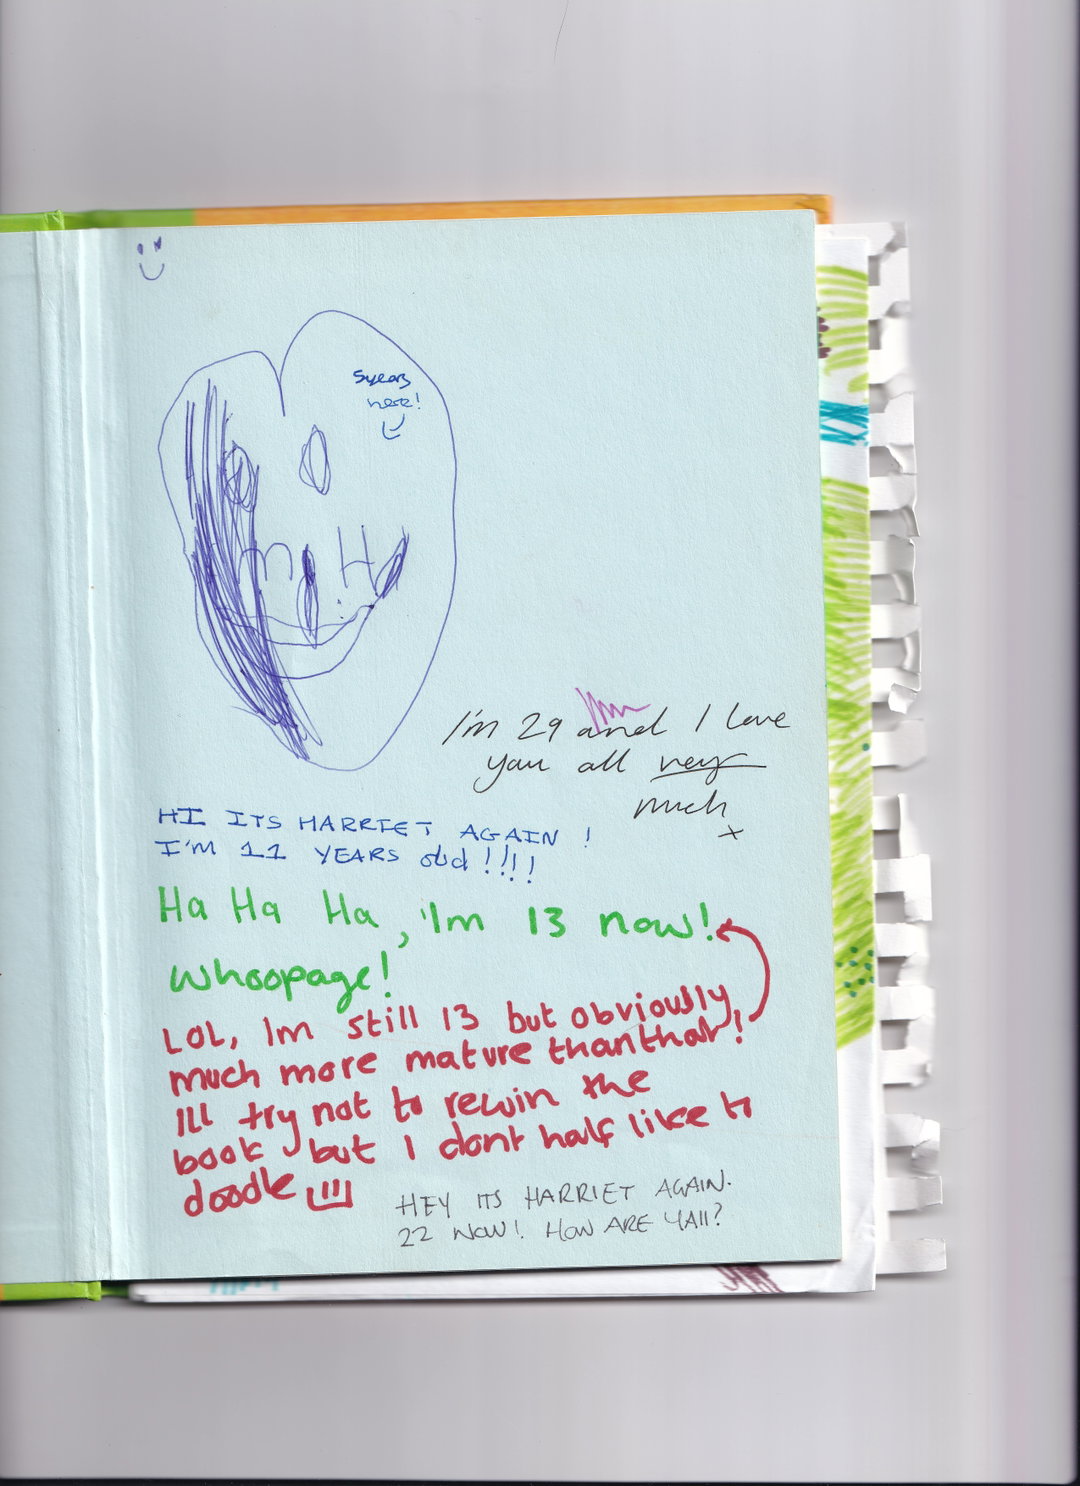 5years
here!
I'm 29 and I love
you all very
much
x
HI ITS HARRIET AGAIN !
I'M 11 YEARS old !!!!
Ha Ha Ha, 'Im 13 now!
Whoopage!
LOL, Im still 13 but obviously
much more mature than that!
Ill try not to rewin the
book but I dont half like to
doodle
HEY ITS HARRIET AGAIN.
22 NOW! HOW ARE YAll?